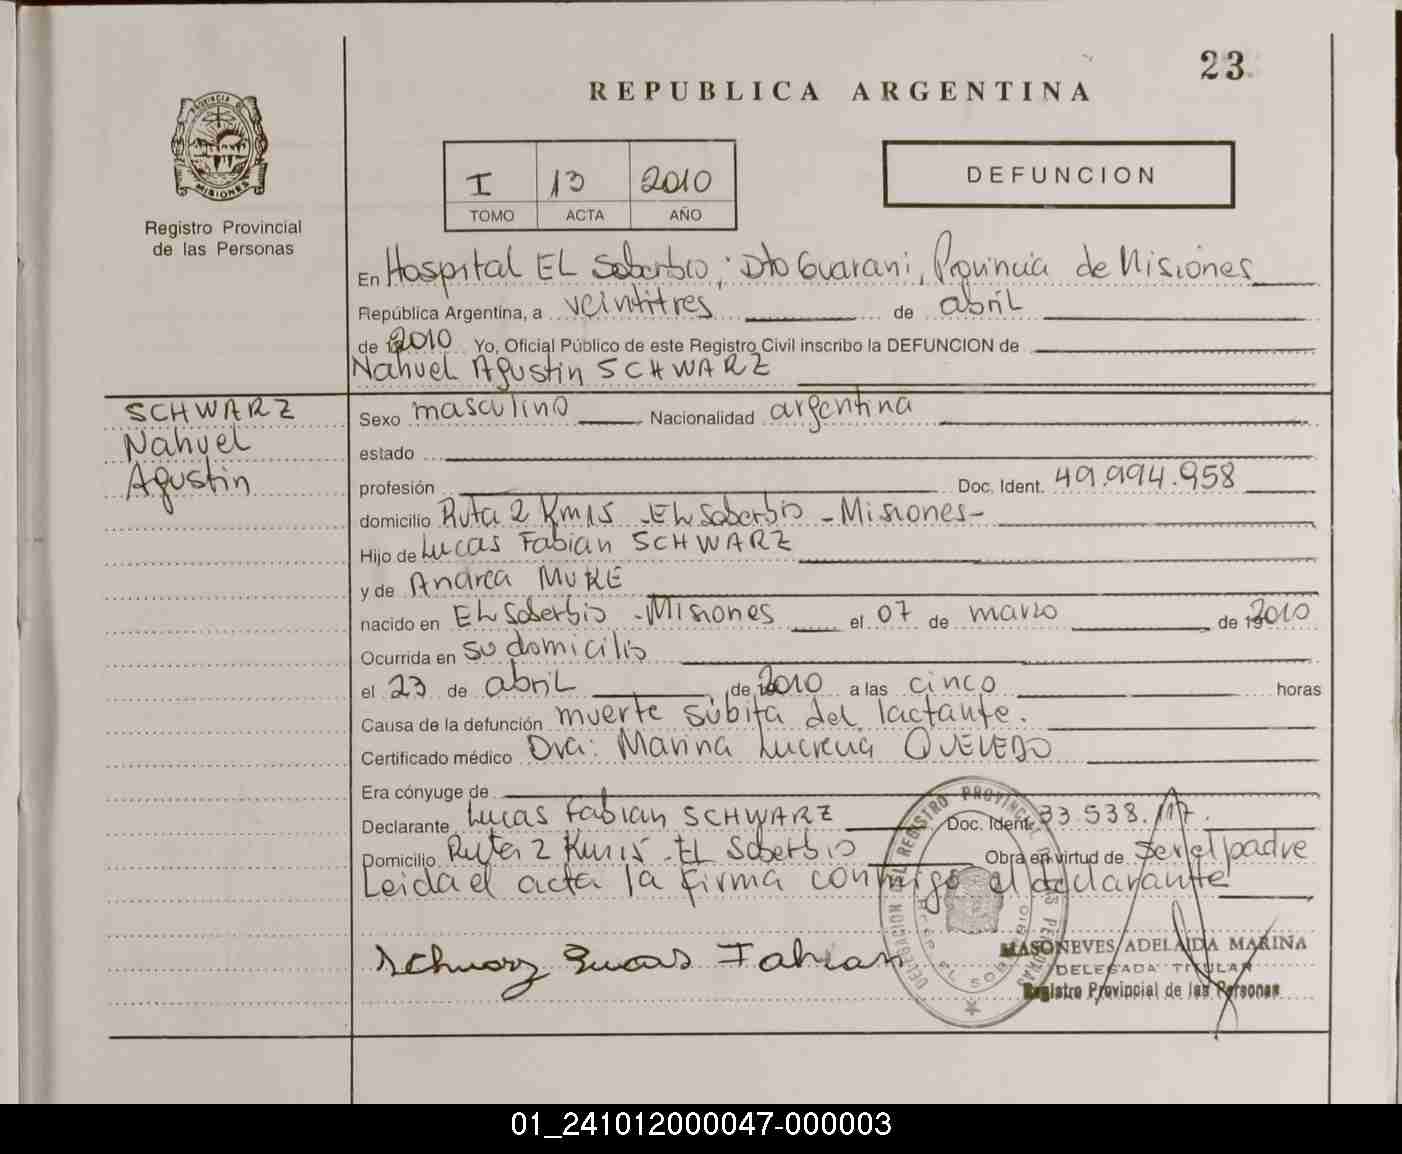 23
REPUBLICA ARGENTINA
PROVINCIA DE
MISIONES
Registro Provincial
de las Personas
I 13 2010
TOMO ACTA AÑO
DEFUNCION
En Hospital EL Soberbio, Dto Guarani, Provincia de Misiones
República Argentina, a veintitres de abril
de 2010 Yo, Oficial Público de este Registro Civil inscribo la DEFUNCION de
Nahuel Agustin SCHWARZ
SCHWARZ
Nahuel
Agustin
Sexo masculino Nacionalidad argentina
estado
profesión Doc. Ident. 49.994.958
domicilio Ruta 2 Km 15 - EL Soberbio - Misiones -
Hijo de Lucas Fabian SCHWARZ
y de Andrea MUKE
nacido en EL Soberbio - Misiones el 07 de marzo de 2010
Ocurrida en su domicilio
el 23 de abril de 2010 a las cinco horas
Causa de la defunción muerte súbita del lactante.
Certificado médico Dra: Marina Lucrecia QUEVEDO
Era cónyuge de
Declarante Lucas Fabian SCHWARZ Doc. Ident. 33 538.117.
Domicilio Ruta 2 Km 15 - EL Soberbio Obra en virtud de ser el padre
Leida el acta la firma conmigo el declarante
Schwarz Lucas Fabian
MASONEVES ADELAIDA MARINA
DELEGADA TITULAR
Registro Provincial de las Personas
DELEGACION DEL REGISTRO PROVINCIAL DE LAS PERSONAS
EL SOBERBIO
01_241012000047-000003